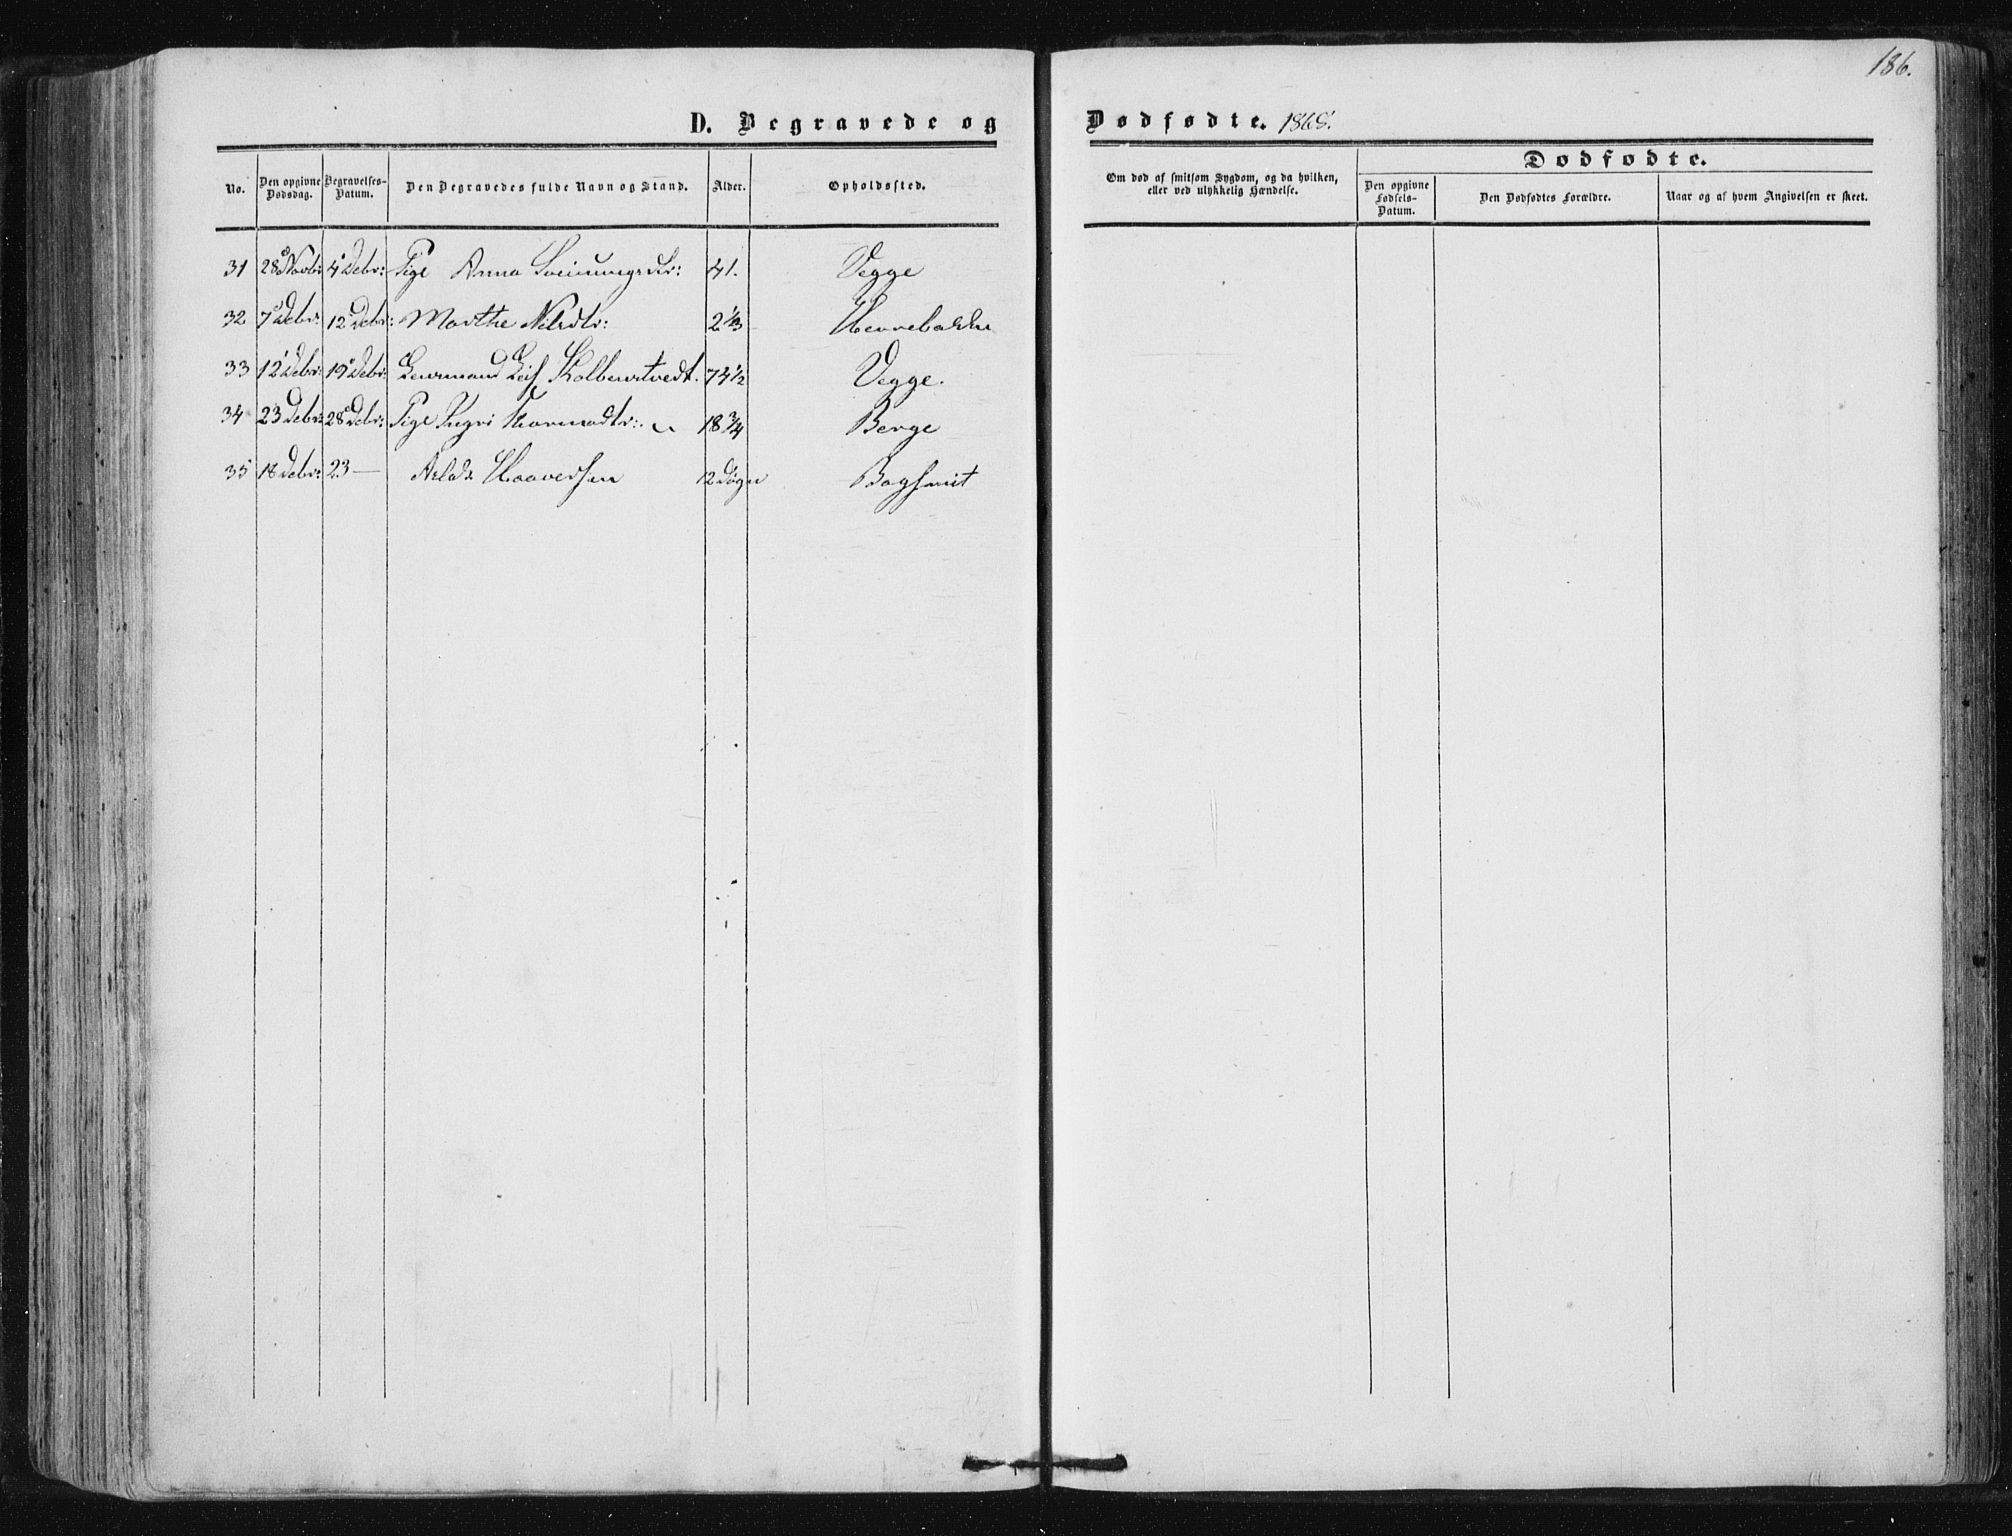 186.
D. Begravede og Dødfødte. 1865.
No. Den opgivne Dødsdag. Begravelses-Datum. Den Begravedes fulde Navn og Stand. Alder. Opholdssted.
Om død af smitsom Sygdom, og da hvilken, eller ved ulykkelig Hændelse.
Dødfødte.
Den opgivne Fødsels-Datum. Den Dødfødtes Forældre. Naar og af hvem Angivelsen er skeet.
31 28 Novbr: 4 Debr: Pige Anna Sveinungsdtr: 41. Vegge
32 7 Debr: 12 Debr: Marthe Nilsdtr: 2 1/3
33 12 Debr: 19 Debr: Leif Kolbernstvedt. 74 1/2 Vegge.
34 23 Debr: 28 Debr: Pige Ingri 18 3/4 Berge
35 18 Debr: 23 — Aslak Haaversen 12 Døgn